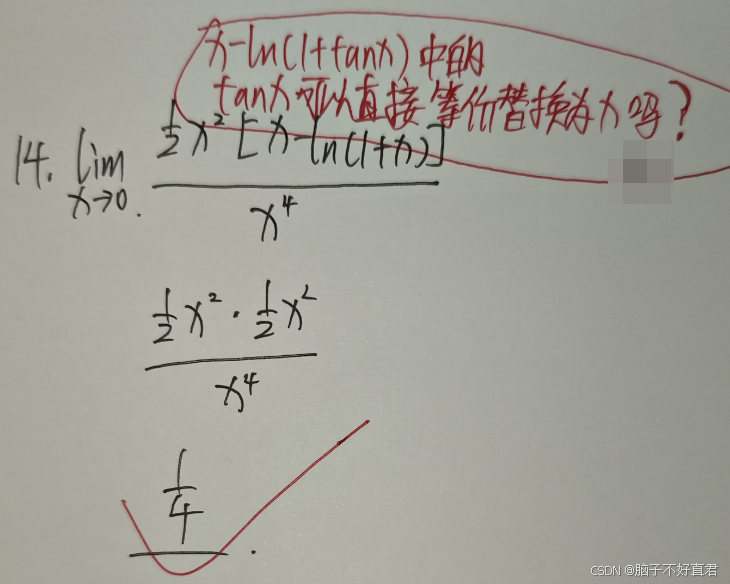 x-ln(1+tanx)中的
tanx可以直接等价替换为x吗?
14. lim x→0 \frac{\frac{1}{2}x²[x-ln(1+x)]}{x⁴}
\frac{\frac{1}{2}x²·\frac{1}{2}x²}{x⁴}
\frac{1}{4}.
CSDN @脑子不好直君